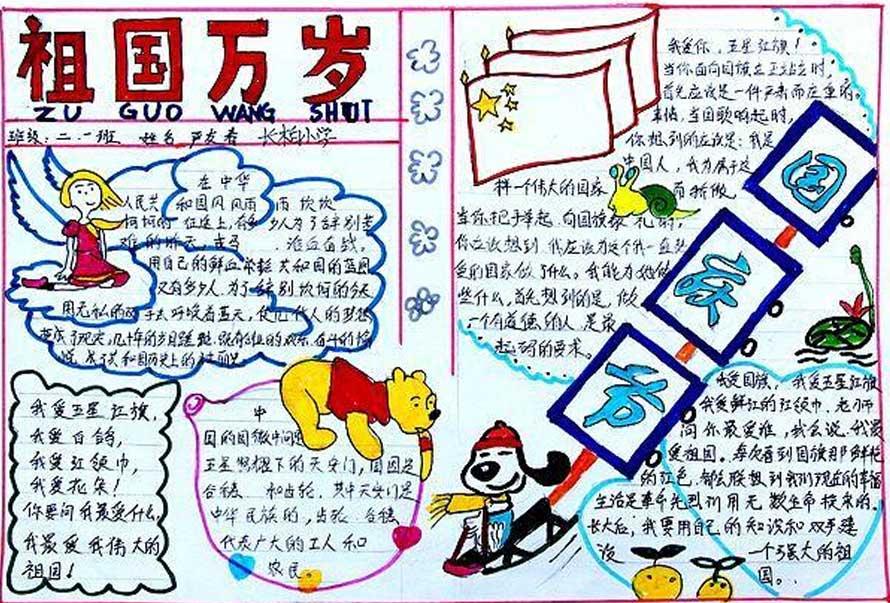 祖国万岁
ZU GUO WANG SHUI
班级：二.一班 姓名 严 长柏小学
在中华
人民共和国风风雨雨坎坎
坷坷的征途上,有多少人为了告别苦
难的昨天,
用自己的鲜血 共和国的蓝图
又有多少人.为了告别坎坷的今天
用无私的双手去 蓝天,使几代人的梦想
变成了现实,几十年的岁月
共和国历史上的
我爱五星红旗,
我爱白鸽,
我爱红领巾,
我爱花朵!
你要问我最爱什么,
我最爱我伟大的
祖国!
中
国的国徽中间是
五星照耀下的天安门,周围是
谷穗 和齿轮.其中天安门是
中华民族的,齿轮.谷穗
代表广大的工人和
农民
我爱你,五星红旗!
当你面向国旗立正站立时,
首先应该是一件严肃而庄重的
事情,当国歌响起时,
你想到的应该是:我是
中国人,我为属于这
样一个伟大的国家 而骄傲
当你把手举起.向国旗敬礼时,
你应该想到.我应该为这个我一直热
爱的国家做了什么.我能为她做
些什么,首先想到的是,做
一个有道德的人是最
起码的要求。
国
庆
节
我爱国旗,我爱五星红旗
我爱鲜红的红领巾.老师
问你最爱谁,我会说.我最
爱祖国。每次看到国旗那鲜艳
的红色.都会联想到我们现在的幸福
生活是革命先烈们用无数生命换来的。
长大后,我要用自己的知识和双手建
设 一个强大的祖
国。